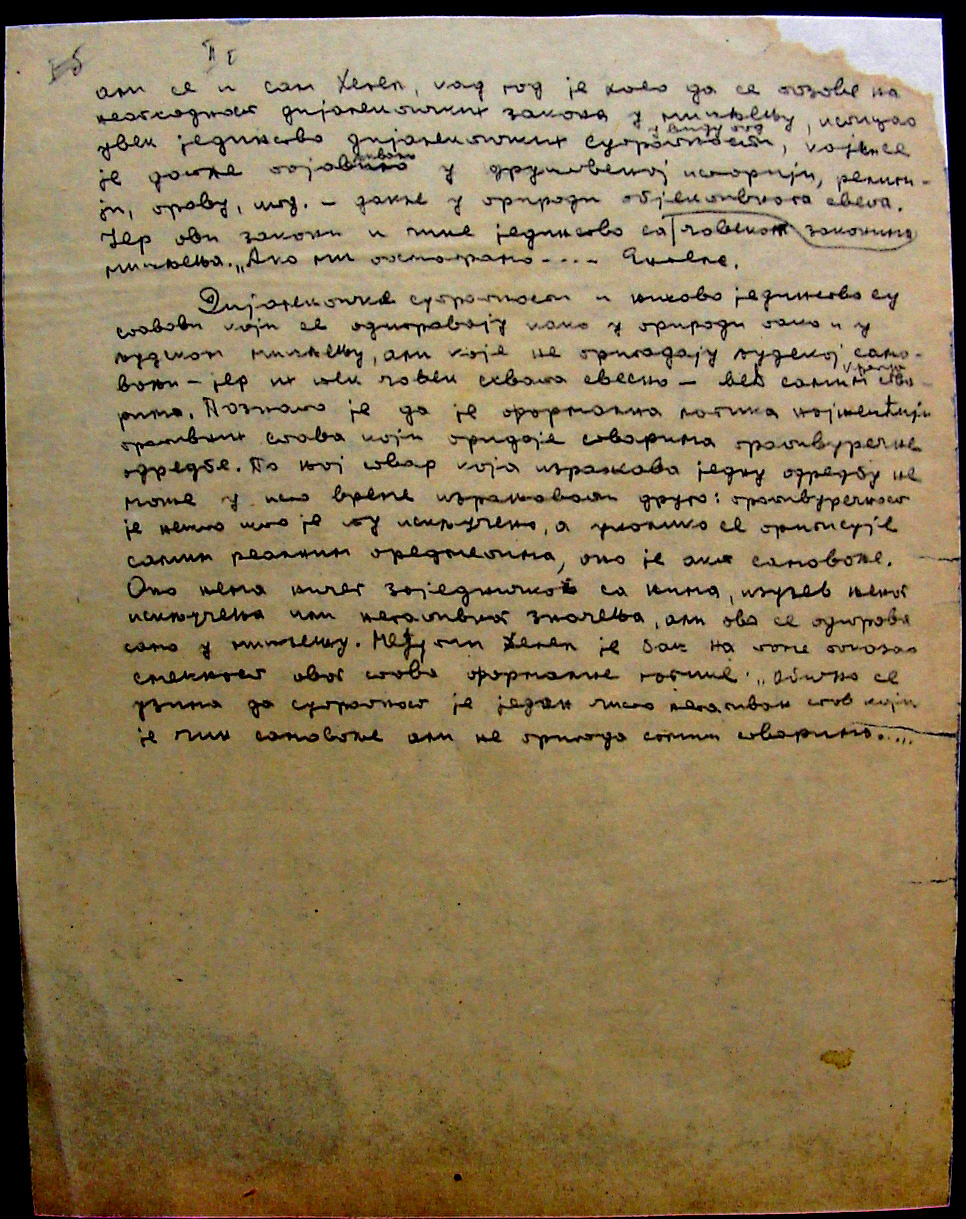 5
али се и сам Хегел, кад год је хтео да се позове на
неопходност дијалектичких закона у мишљењу, истицао
увек јединство дијалектичких супротности, које се
у виду
је дошле појавило у друштвеној историји, религи-
ји, праву, итд. – дакле у природи објективнога света.
Јер ови закони и чине јединство са човековим законима
мишљења. „Ако ми посматрамо .... Енгелс.
Дијалектичке супротности и њихово јединство су
ставови који се одигравају како у природи тако и у
људском мишљењу, али које не припадају људској само-
вољи – јер их тек човек схвата свесно – већ самим ства-
рима. Познато је да је формална логика најжешћи
противник става који придаје стварима противуречне
одредбе. По њој ствар која изражава једну одредбу не
може у исто време изражавати другу: противуречност
је нешто што је ту искључено, а уколико се приписује
самим реалним предметима, оно је акт самовоље.
Оно нема ничег заједничког са њима, изузев неког
искључења или негативног значења, али ово се одиграва
само у мишљењу. Међутим Хегел је баш на томе показао
смешност овог става формалне логике: „Обично се
узима да супротност је један чисто негативан став који
је чин самовоље али не припада самим стварима....